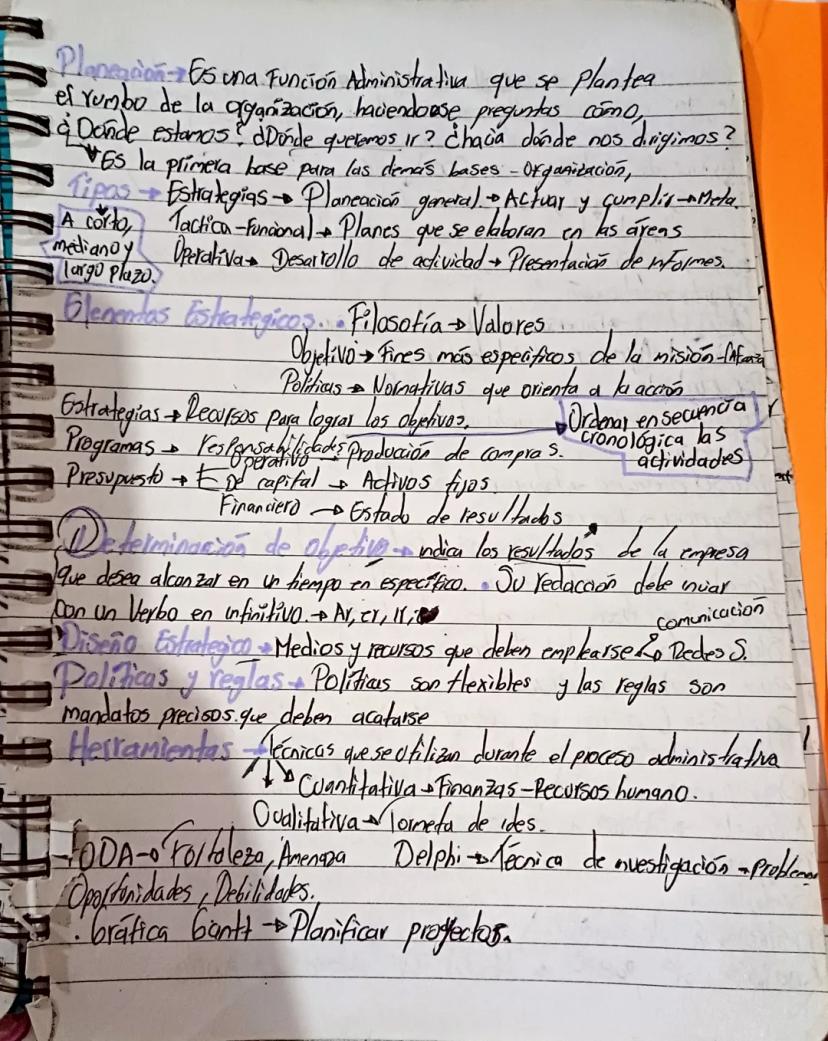 Planeación → Es una Función Administrativa que se plantea
el rumbo de la organización, haciendose preguntas cómo,
¿Donde estamos? ¿Dónde queremos ir? ¿hacia dónde nos dirigimos?
Es la primera base para las demás bases - organización,
Tipos → Estrategias → Planeación general. → Actuar y cumplir → Meta.
A corto, Tactica - Funcional → Planes que se elaboran en las áreas
mediano y Operativa → Desarrollo de actividad → Presentación de informes.
largo plazo.
Elementos Estrategicos. • Filosofía → Valores
Objetivo → Fines más especificos de la misión -
Políticas → Normativas que orienta a la acción
Estrategias → Recursos para lograr los objetivos. Ordenar en secuencia
Programas → responsabilidades Producción de compras. cronológica las
Presupuesto → operativo actividades
De capital → Activos fijos.
Financiero → Estado de resultados
Determinación de objetivo → indica los resultados de la empresa
que desea alcanzar en un tiempo en específico. • Su redacción debe iniciar
con un Verbo en infinitivo. → Ar, er, ir, comunicación
Diseño Estrategico → Medios y recursos que deben emplearse Redes S.
Políticas y reglas → Políticas son flexibles y las reglas son
mandatos precisos que deben acatarse
Herramientas → Técnicas que se utilizan durante el proceso administrativa
Cuantitativa → Finanzas - Recursos humano.
Cualitativa → Tormeta de ides.
FODA → Fortaleza, Amenaza Delphi → Técnica de investigación → Problema
Oportunidades, Debilidades.
• Gráfica Gantt → Planificar proyectos.